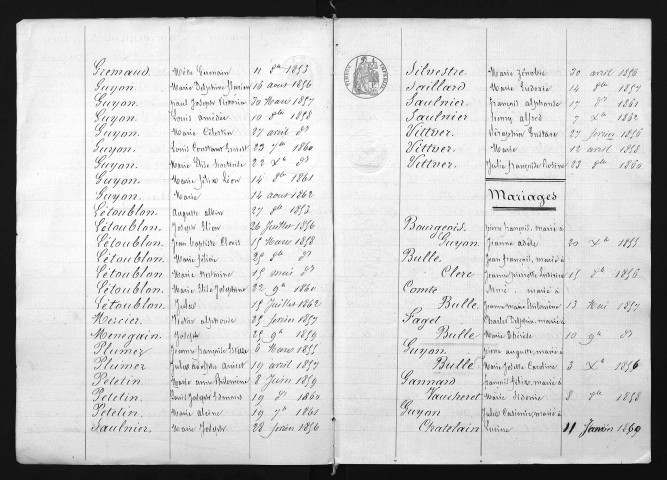 Gremaud. 11 1853
Guyon. Marie Delphine 16 aout 1856
Guyon. paul Joseph 30 Mars 1857
Guyon. Louis amédée 10 8bre 1858
Guyon. Marie Célestin 27 avril do
Guyon. Louis Constant Ernest 23 7bre 1860
Guyon. Marie Elise 22 Xbre do
Guyon. Marie Félix Léon 14 8bre 1861
Guyon. Marie 14 aout 1862
Létoublon. Auguste albin 27 8bre 1853
Létoublon. Joseph Elien 26 Juillet 1856
Létoublon. Jean baptiste Clovis 15 Mars 1858
Létoublon. Marie 25 8bre do
Létoublon. Marie 15 mars do
Létoublon. Marie Elise Joséphine 22 9bre 1860
Létoublon. Jules 15 Juillet 1862
Mercier. Victor alphonse 25 février 1857
Menegain. Joseph 25 9bre 1859
Plumer Jeanne françoise 6 Mars 1855
Plumer Jules adolphe 19 avril 1857
Petetin. Marie anne Philomène 8 Juin 1859
Petetin. Louis Joseph 19 do 1860
Petetin. Marie 19 7bre 1861
Saulnier. Marie Joseph 28 février 1856
Silvestre Marie Zénobie 30 avril 1856
Saillard Marie 14 8bre 1857
Saulnier françois alphonse 17 do 1861
Saulnier henry alfred 7 Xbre 1862
Vittver. Séraphin Gustave 27 février 1856
Vittver. Marie 12 avril 1858
Vittver. Julie françoise 23 8bre 1860
Mariages
Bourgeois. pierre françois, marié à
Guyon. Jeanne adèle 20 Xbre 1855
Bulle. Jean françois, marié à
Clerc Jeanne pierrette 15 do 1856
Comte Aimé, marié à
Bulle. Jeanne marie Philomène 13 Mai 1857
Saget Charles Delphin, marié à
Bulle Marie Thérèse 10 9bre do
Guyon. pierre auguste, marié à
Bulle Marie Josette Caroline 3 Xbre 1856
Gannard françois, marié à
Vaucheret Marie Sidonie 8 1858
Guyon Jules Casimir, marié à
Chatelain 11 Janvier 1859